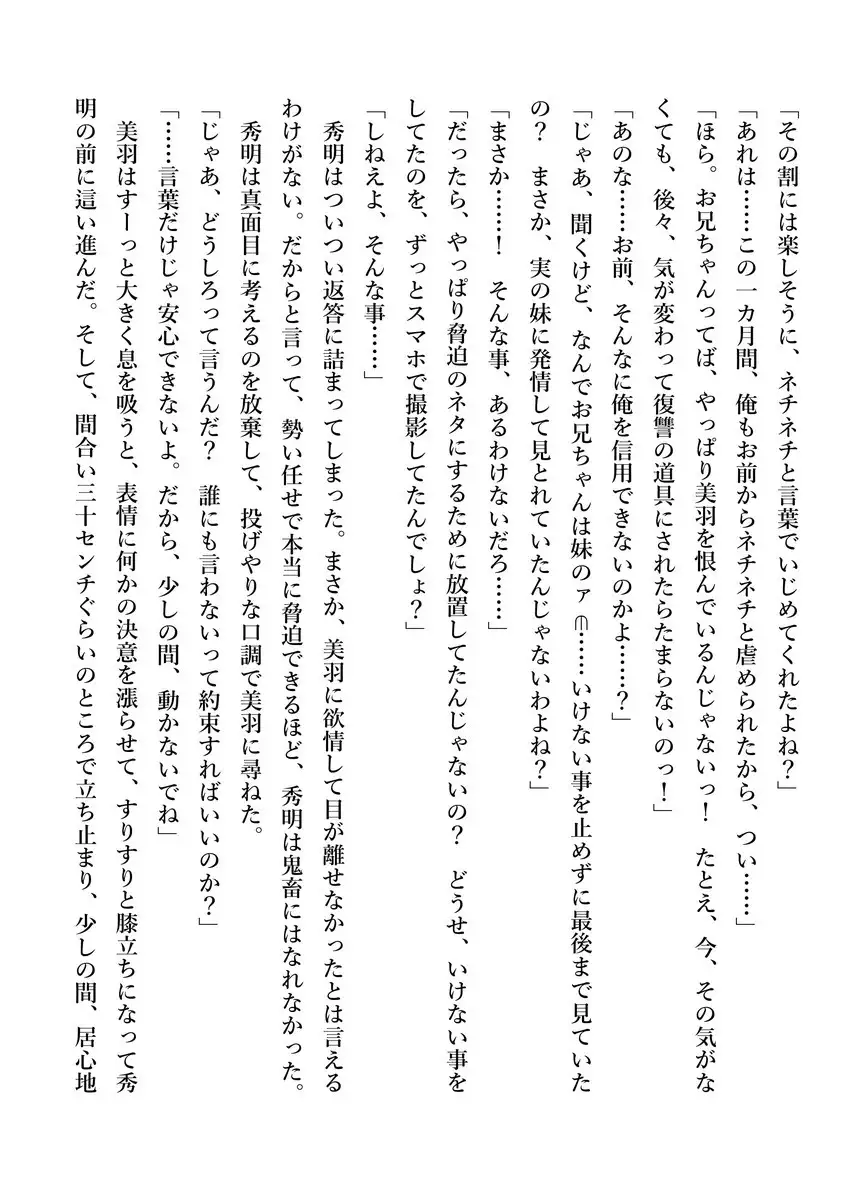 「その割には楽しそうに、ネチネチと言葉でいじめてくれたよね？」
「あれは……この一カ月間、俺もお前からネチネチと虐められたから、つい……」
「ほら。お兄ちゃんってば、やっぱり美羽を恨んでいるんじゃないっ！　たとえ、今、その気がな
くても、後々、気が変わって復讐の道具にされたらたまらないのっ！」
「あのな……お前、そんなに俺を信用できないのかよ……？」
「じゃあ、聞くけど、なんでお兄ちゃんは妹のァ……いけない事を止めずに最後まで見ていた
の？　まさか、実の妹に発情して見とれていたんじゃないわよね？」
「まさか……！　そんな事、あるわけないだろ……」
「だったら、やっぱり脅迫のネタにするために放置してたんじゃないの？　どうせ、いけない事を
してたのを、ずっとスマホで撮影してたんでしょ？」
「しねえよ、そんな事……」
　秀明はついつい返答に詰まってしまった。まさか、美羽に欲情して目が離せなかったとは言える
わけがない。だからと言って、勢い任せで本当に脅迫できるほど、秀明は鬼畜にはなれなかった。
　秀明は真面目に考えるのを放棄して、投げやりな口調で美羽に尋ねた。
「じゃあ、どうしろって言うんだ？　誰にも言わないって約束すればいいのか？」
「……言葉だけじゃ安心できないよ。だから、少しの間、動かないでね」
　美羽はすーっと大きく息を吸うと、表情に何かの決意を漲らせて、すりすりと膝立ちになって秀
明の前に這い進んだ。そして、間合い三十センチぐらいのところで立ち止まり、少しの間、居心地